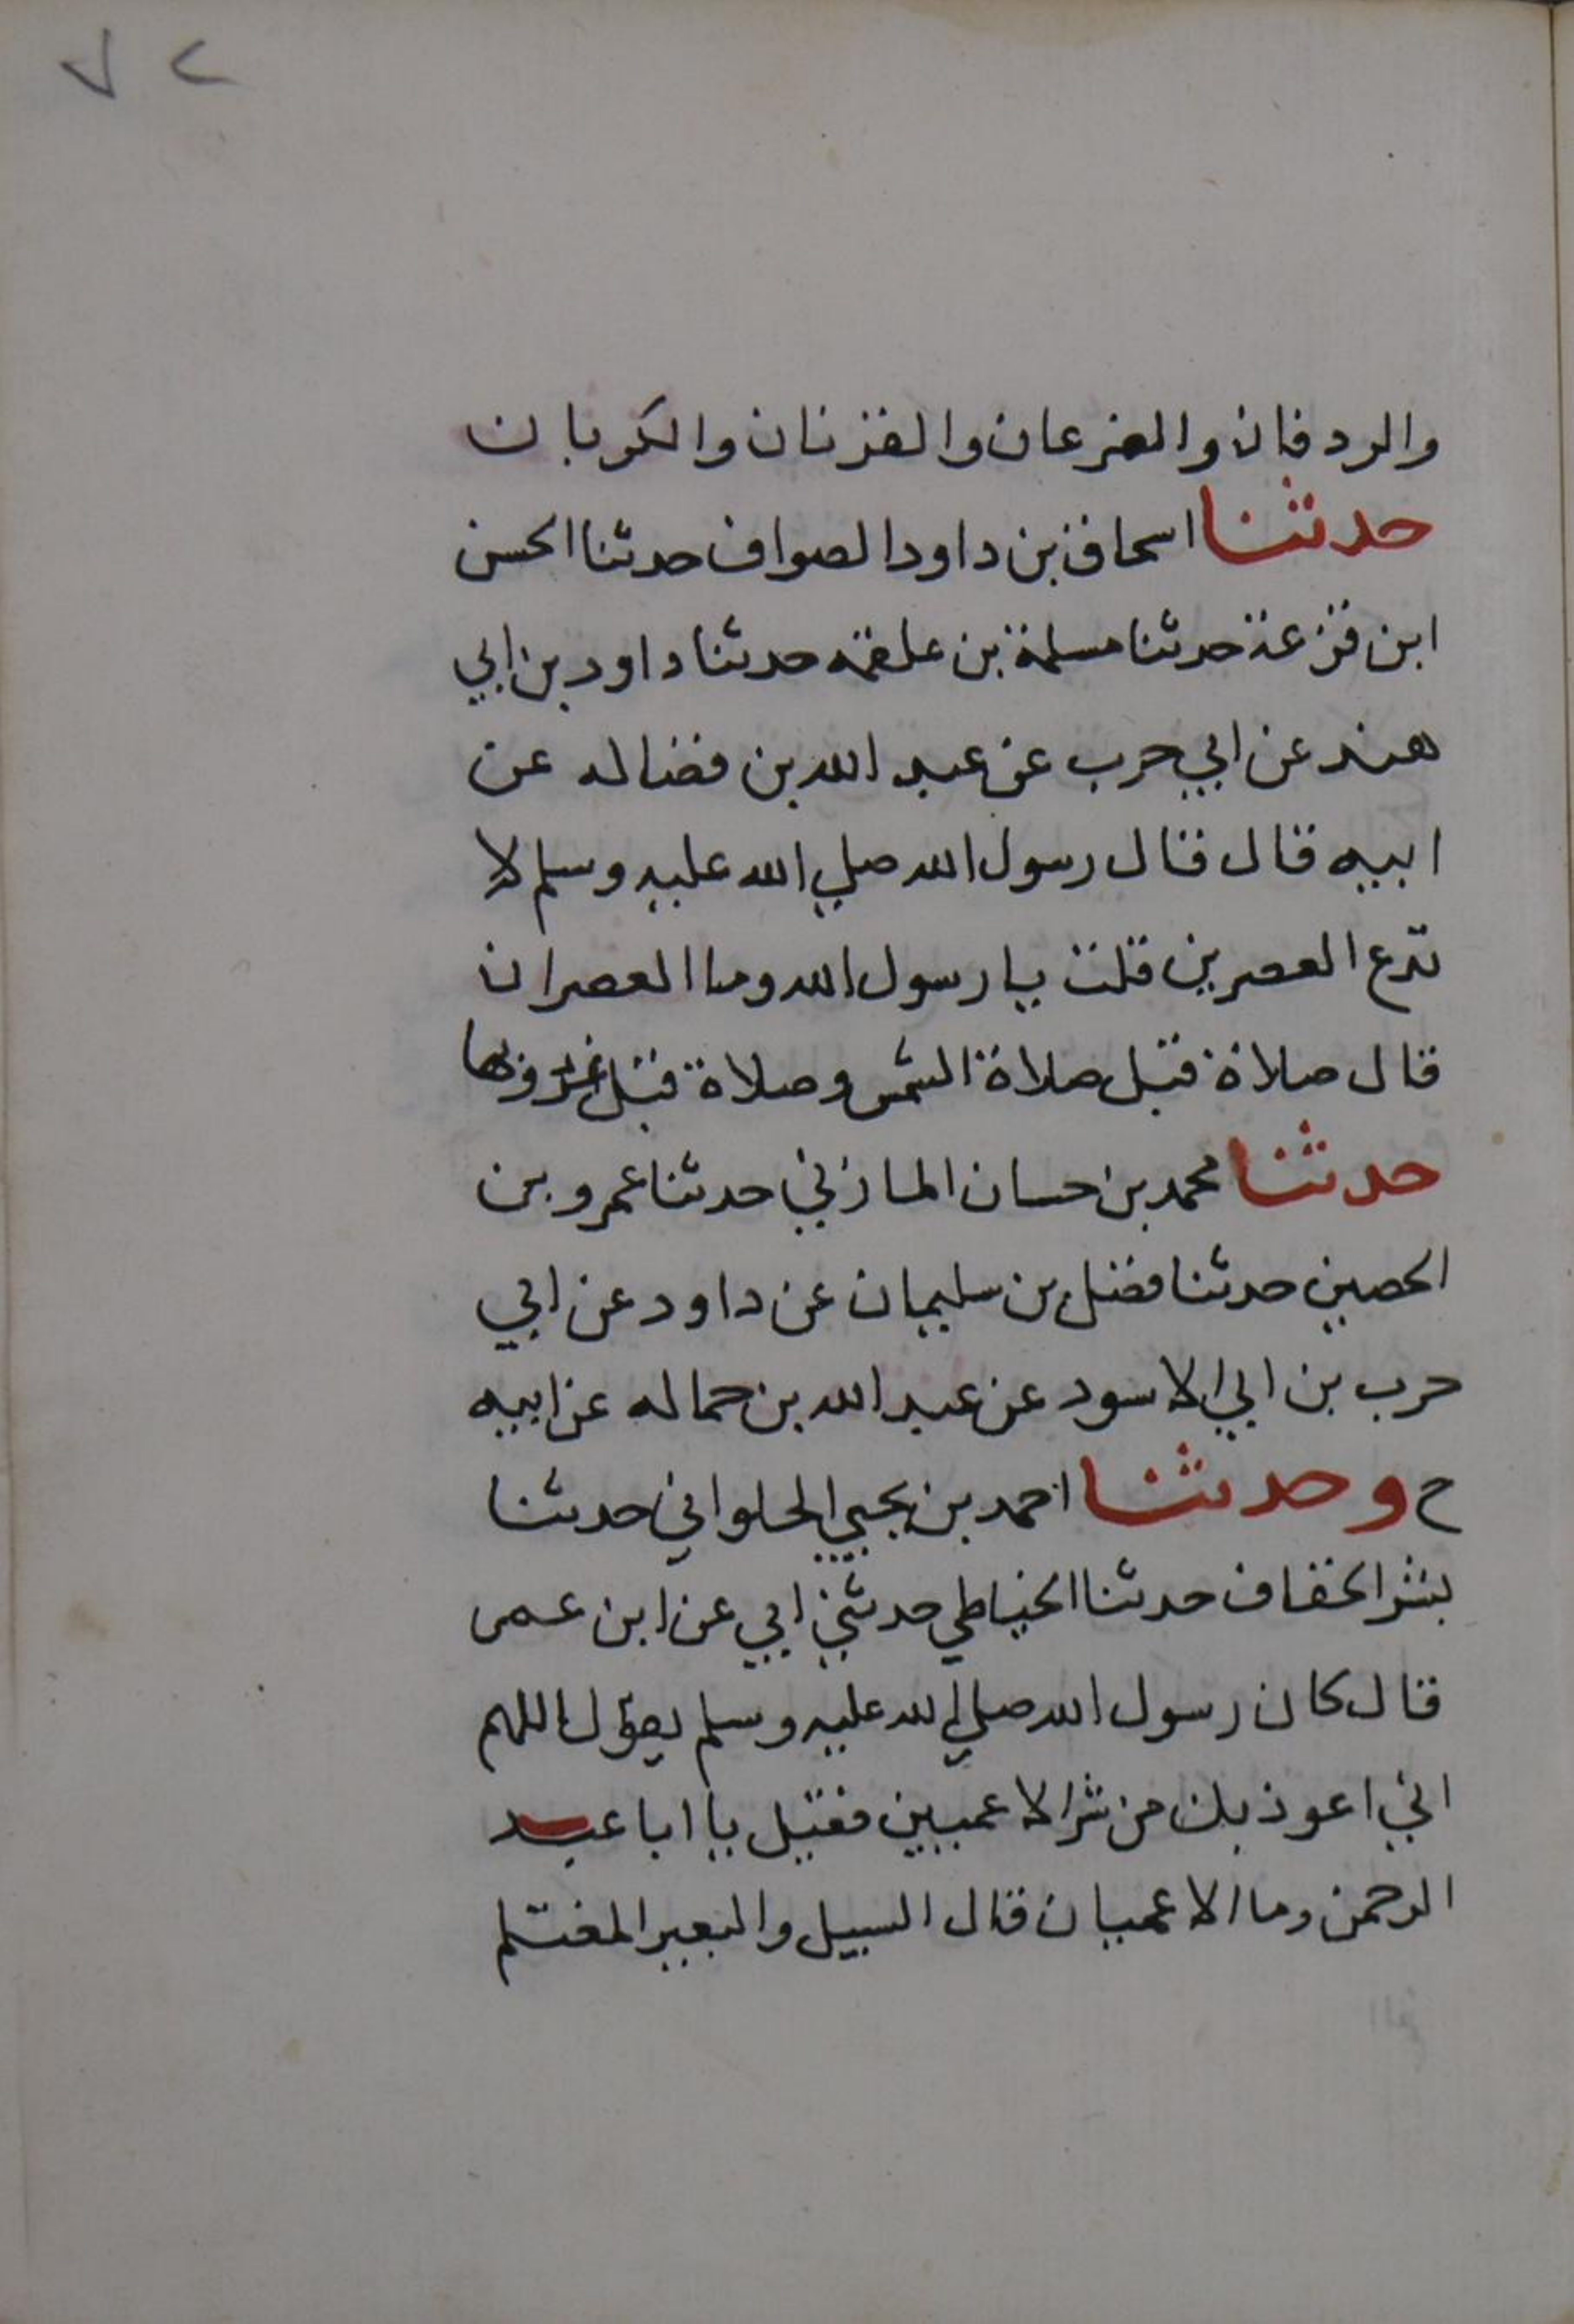 والردفان والصرعان والقرنان والكربان
حدثنا اسحاق بن داود الصواف حدثنا الحسن
ابن قزعة حدثنا مسلمة بن علقمه حدثنا داود بن ابي
هند عن ابي حرب عن عبد الله بن فضاله عن
ابيه قال قال رسول الله صلي الله عليه وسلم لا
تدع العصرين قلت يا رسول الله وما العصران
قال صلاة قبل صلاة الشمس وصلاة قبل غروبها
حدثنا محمد بن حسان المازني حدثنا عمرو بن
الحصين حدثنا فضل بن سليمان عن داود عن ابي
حرب بن ابي الاسود عن عبد الله بن حماله عن ابيه
ح وحدثنا احمد بن يحيي الحلواني حدثنا
بشر الخفاف حدثنا الخياطي حدثني ابي عن ابن عمر
قال كان رسول الله صلي الله عليه وسلم يقول اللهم
اني اعوذ بك من شر الاعميين فقيل يا ابا عبد
الرحمن وما الاعميان قال السيل والبعير المغتلم